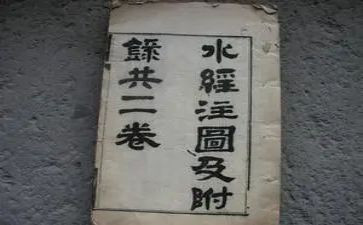 水經注圖及附
錄共二卷